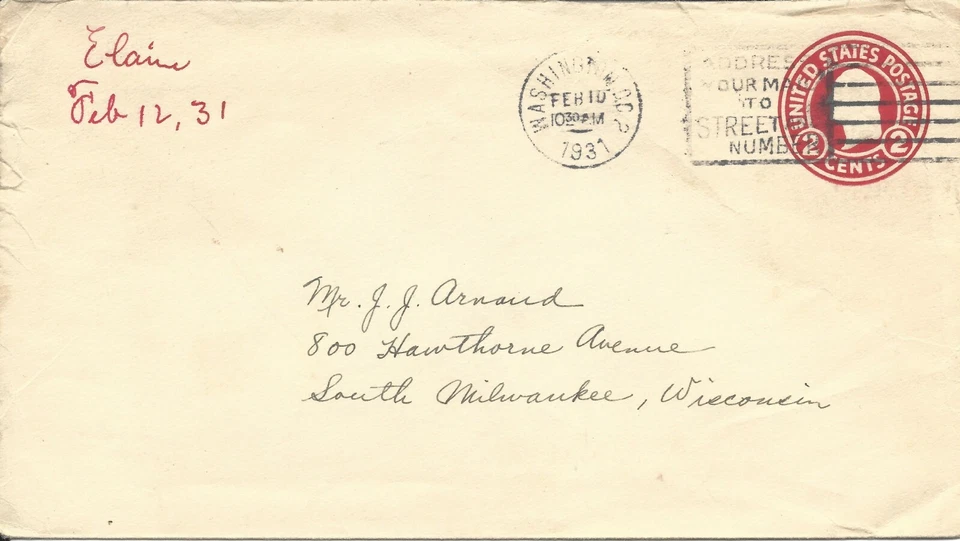 Elaine
Feb 12, 31
WASHINGTON, D.C. 2
FEB 10
1030 PM
1931
ADDRESS
YOUR MA
TO
STREET
NUMB
UNITED STATES POSTAGE
2 CENTS 2
Mr. J. J. Arnaud
800 Hawthorne Avenue
South Milwaukee, Wisconsin